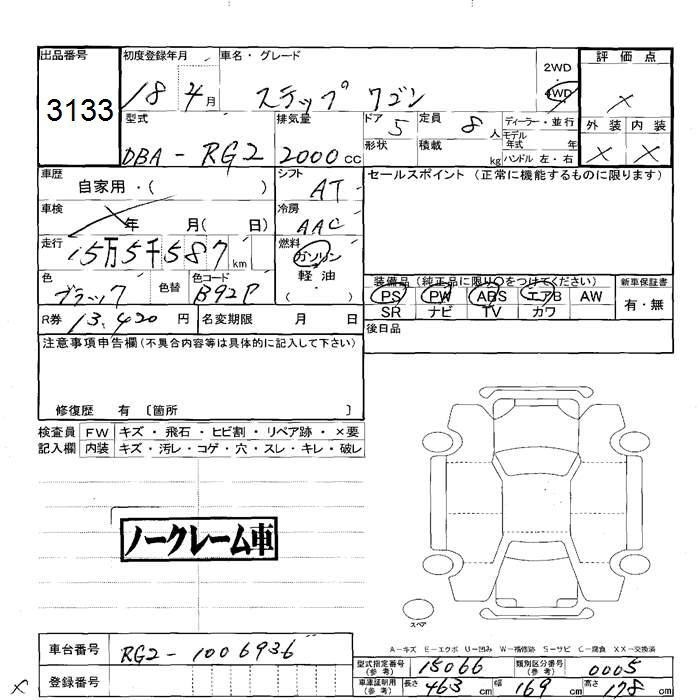 出品番号 初度登録年月 車名・グレード 2WD 評価点
3133 18 4月 ステップワゴン 4WD ×
型式 排気量 ドア 5 定員 8人 ディーラー・並行 外装 内装
モデル年式 年
DBA-RG2 2000cc 形状 積載 kg ハンドル 左・右 × ×
車歴 自家用・( ) シフト AT セールスポイント (正常に機能するものに限ります)
車検 年 月( 日) 冷房 AAC
走行 15万5千587km 燃料 ガソリン
軽油
・( )
色 ブラック 色替 色コード B92P 装備品 (純正品に限り○をつけてください) 新車保証書
PS PW ABS エアB AW 有・無
R券 13,420円 名変期限 月 日 SR ナビ TV カワ
後日品
注意事項申告欄(不具合内容等は具体的に記入して下さい)
修復歴 有 〔箇所 〕
検査員 FW キズ・飛石・ヒビ割・リペア跡・×要
記入欄 内装 キズ・汚レ・コゲ・穴・スレ・キレ・破レ
ノークレーム車
スペア
A-キズ E-エクボ U-凹み W-補修跡 S-サビ C-腐食 XX-交換済
車台番号 RG2-1006936 型式指定番号(参考) 15066 類別区分番号(参考) 0005
登録番号 車庫証明用(参考) 長さ 463cm 幅 169cm 高さ 178cm
×